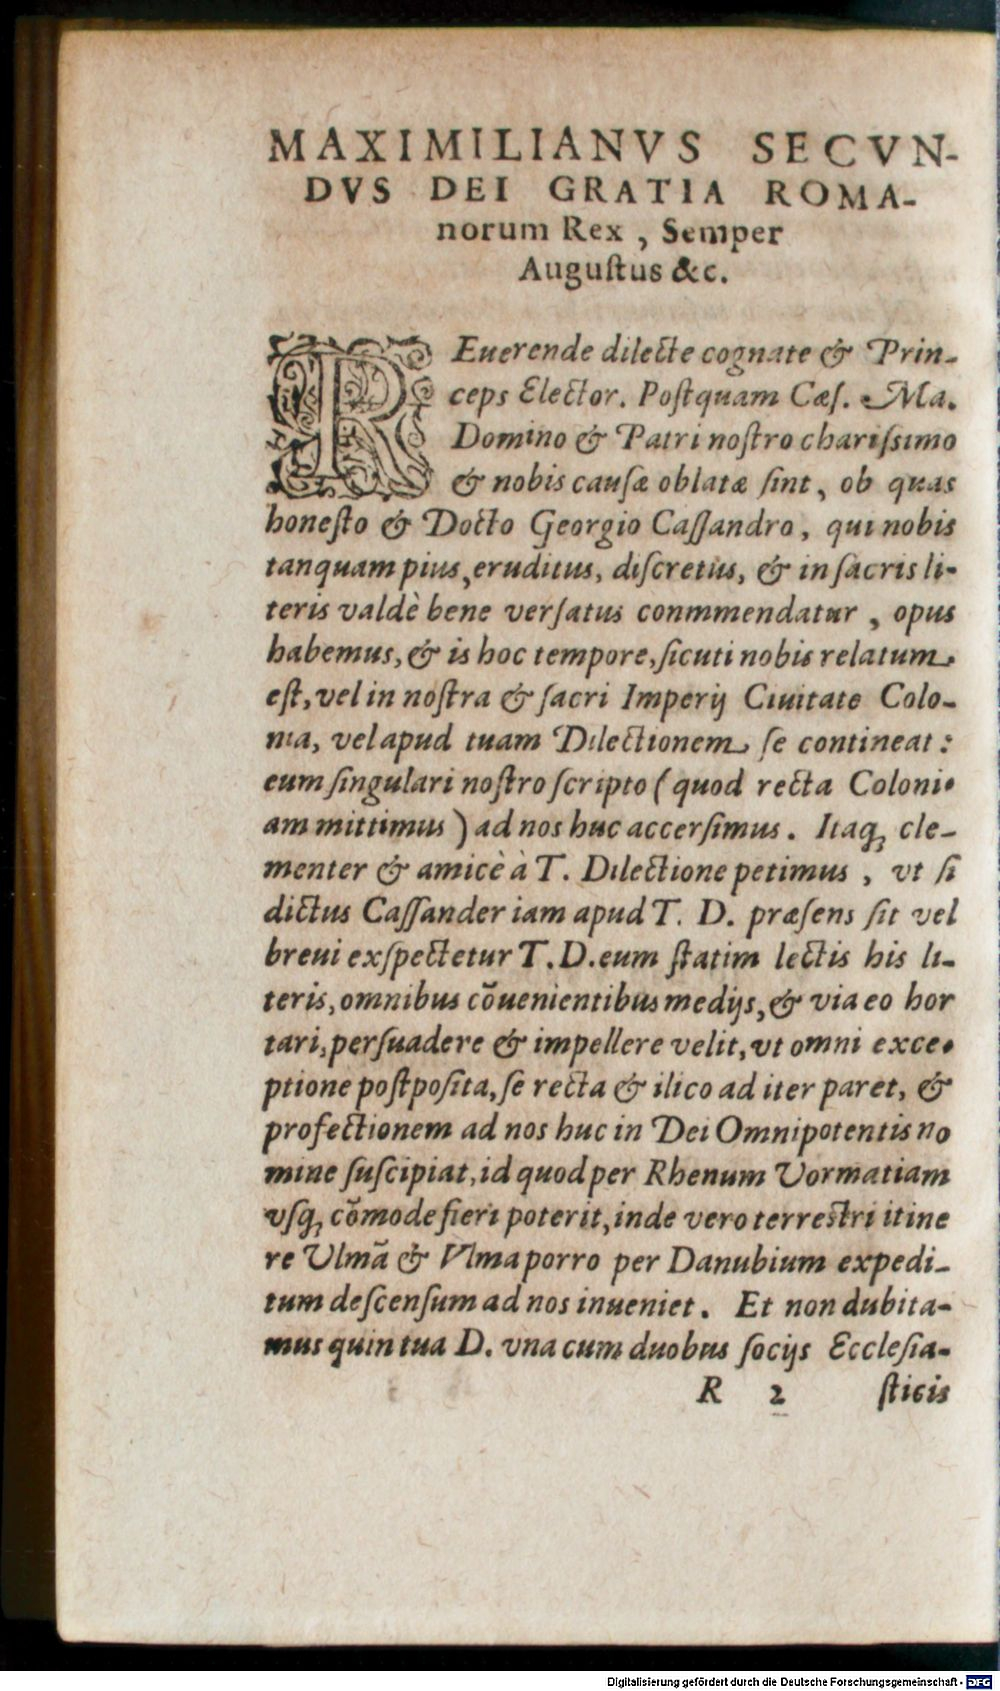 MAXIMILIANVS SECVN-
DVS DEI GRATIA ROMA-
norum Rex, Semper
Auguſtus &c.
REuerende dilecte cognate & Prin-
ceps Elector. Poſtquam Cæſ. Ma.
Domino & Patri noſtro chariſsimo
& nobis cauſæ oblatæ ſint, ob quas
honeſto & Docto Georgio Caſſandro, qui nobis
tanquam pius, eruditus, diſcretus, & in ſacris li-
teris valdè bene verſatus conmmendatur, opus
habemus, & is hoc tempore, ſicuti nobis relatum
eſt, vel in noſtra & ſacri Imperij Ciuitate Colo-
nia, vel apud tuam Dilectionem ſe contineat:
eum ſingulari noſtro ſcripto (quod recta Coloni-
am mittimus) ad nos huc accerſimus. Itaq; cle-
menter & amicè à T. Dilectione petimus, vt ſi
dictus Caſſander iam apud T. D. præſens ſit vel
breui exſpectetur T. D. eum ſtatim lectis his li-
teris, omnibus cõuenientibus medijs, & via eo hor
tari, perſuadere & impellere velit, vt omni exce-
ptione poſtpoſita, ſe recta & ilico ad iter paret, &
profectionem ad nos huc in Dei Omnipotentis no
mine ſuſcipiat, id quod per Rhenum Vormatiam
vſq; cõmode fieri poterit, inde vero terreſtri itine
re Vlmã & Vlma porro per Danubium expedi-
tum deſcenſum ad nos inueniet. Et non dubita-
mus quin tua D. vna cum duobus ſocijs Eccleſia-
R 2 ſticis
Digitalisierung gefördert durch die Deutsche Forschungsgemeinschaft - DFG